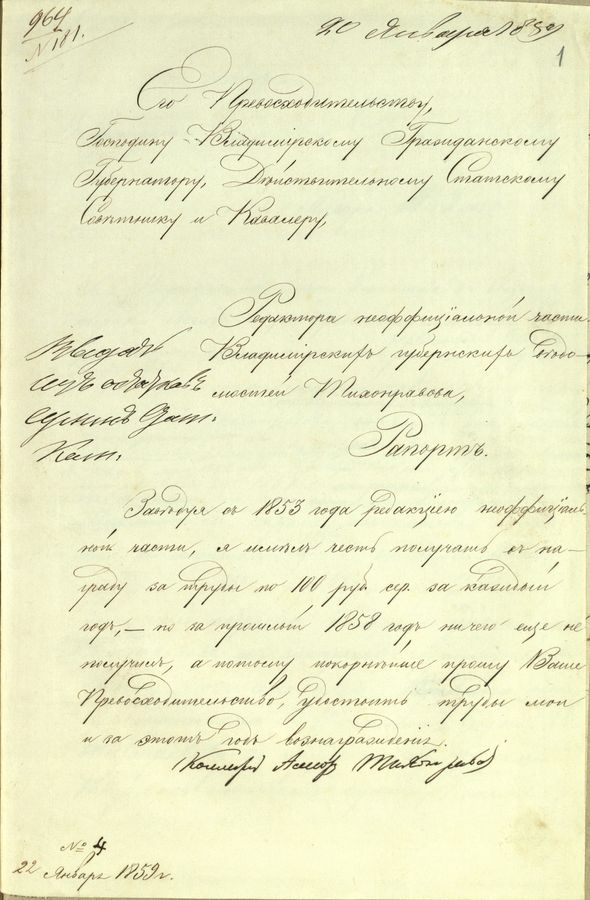 964
N 181.
20 Января 1859
1
Его Превосходительству,
Господину Владимірскому Гражданскому
Губернатору, Действительному Статскому
Совѣтнику и Кавалеру,
Редактора неоффиціальной части
Владимірскихъ губернскихъ Вѣдо-
мостей Тихонравова,
Рапортъ.
Выдать
изъ остатковъ
Завѣдуя съ 1853 года редакціею неоффиціаль-
ной части, я имѣлъ честь получать въ на-
граду за труды по 100 руб. сер. за каждый
годъ, — но за прошлый 1858 годъ ничего еще не
получилъ, а потому покорнѣйше прошу Ваше
Превосходительство, удостоить труды мои
и за этотъ годъ вознагражденія.
Тихонравовъ
№ 4
22 Января 1859 г.